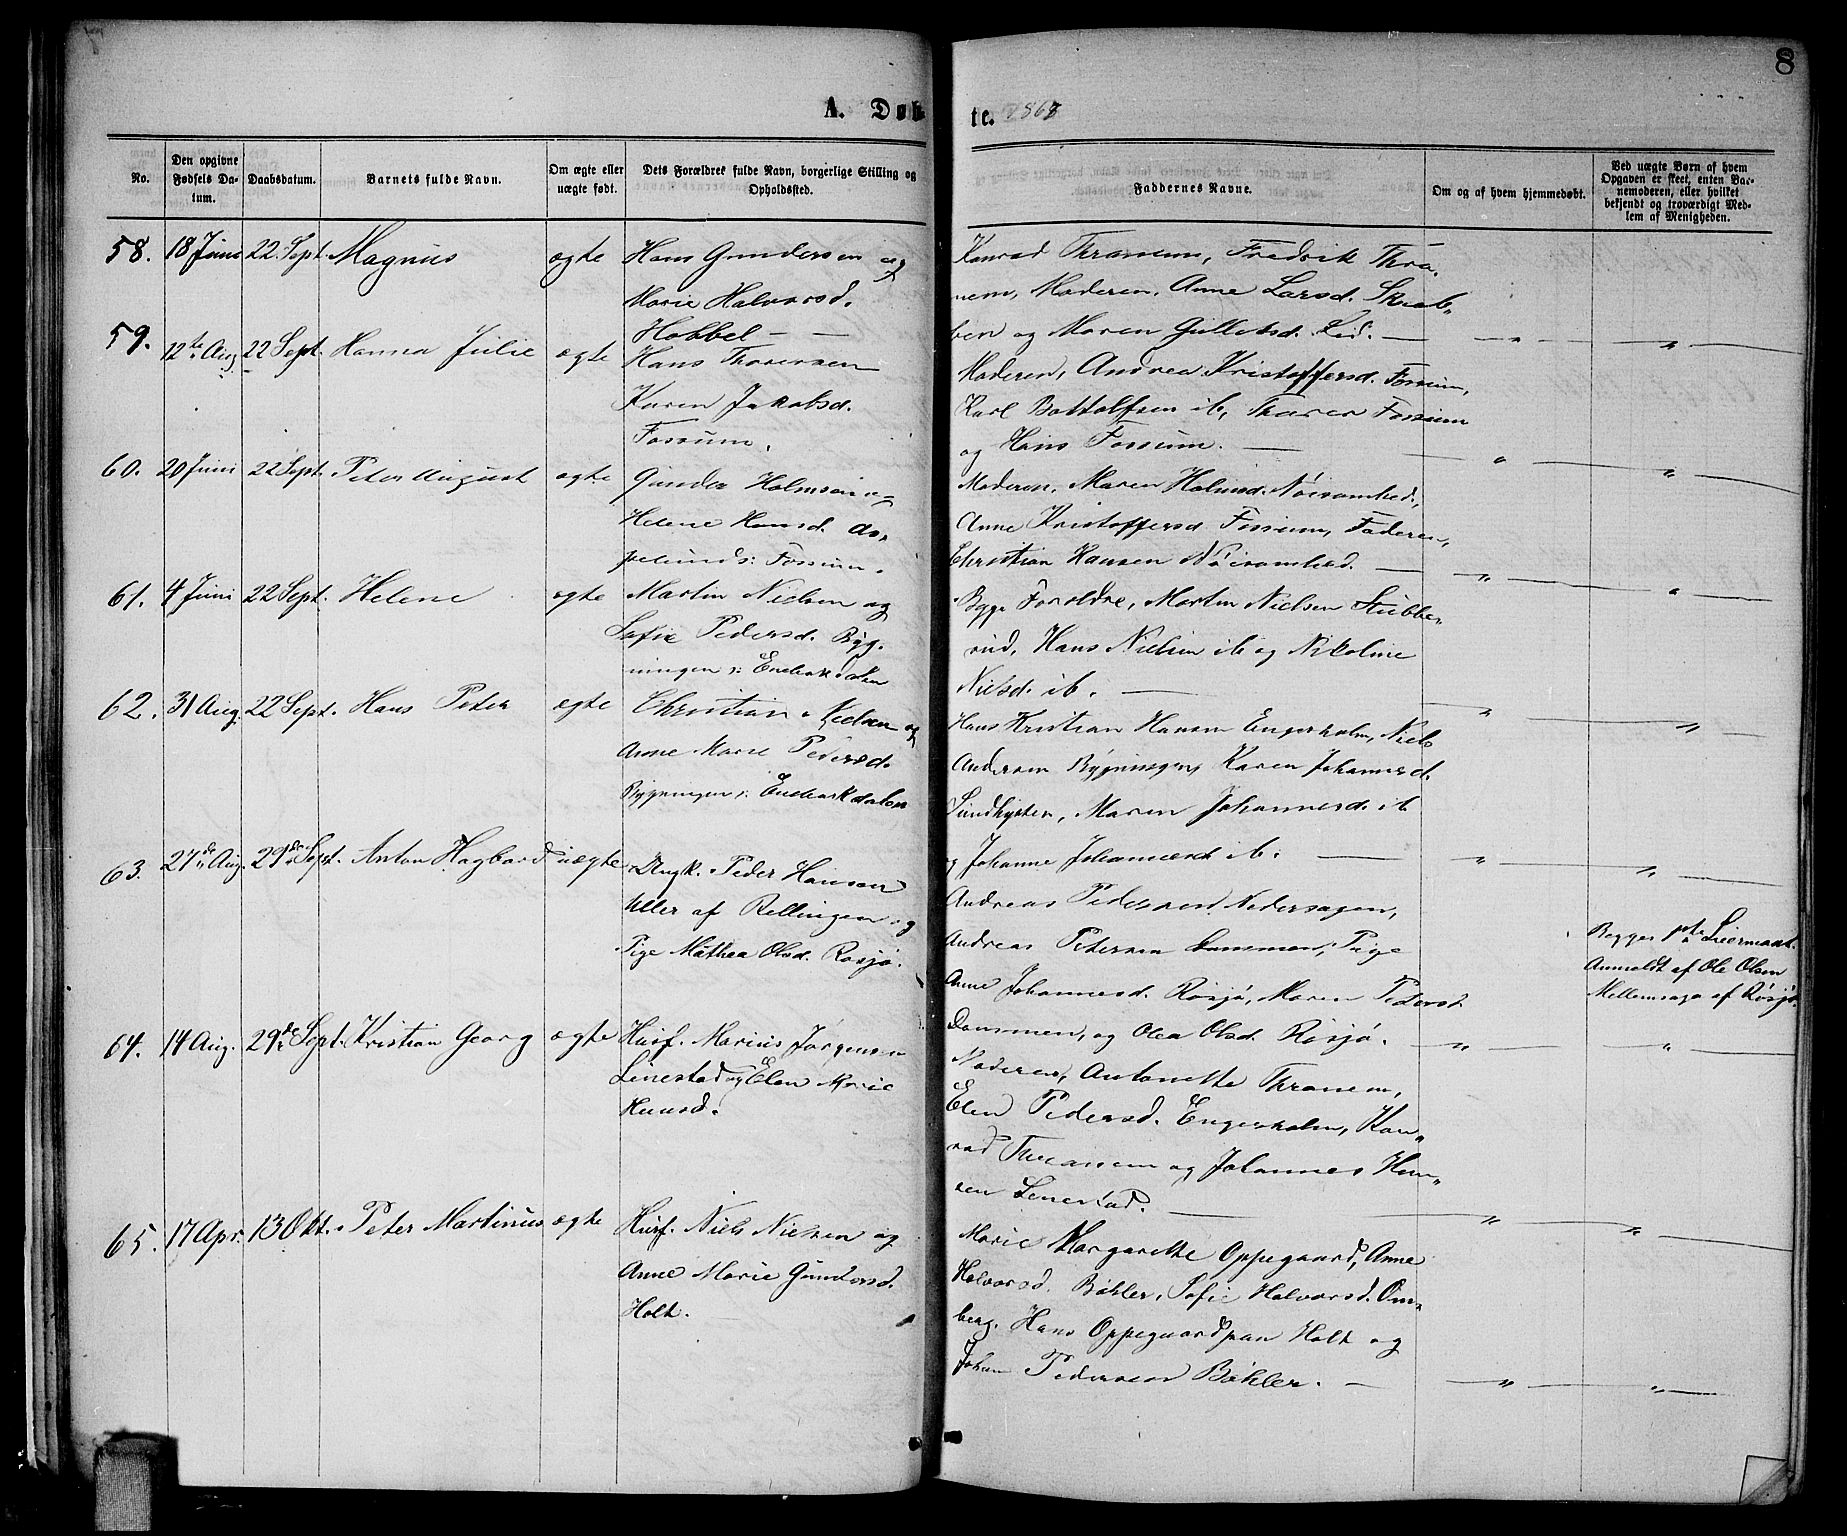 8
A. Døb
te. 1867
No.
Den opgivne Fødsels Datum.
Daabsdatum.
Barnets fulde Navn.
Om ægte eller uægte født.
Dets Forældres fulde Navn, borgerlige Stilling og Opholdssted.
Faddernes Navne.
Om og af hvem hjemmedøbt.
Ved uægte Børn af hvem Opgaven er skeet, enten Barnemoderen, eller hvilket bekjendt og troværdigt Medlem af Menigheden.
58. 18 Juni 22. Sept. Magnus ægte Hans Gundersen og
Marie Halvorsd.
Hobbel
Konrad Thranem, Fredrik Thra-
nem, Moderen, Anne Larsd.
og Maren Lid.
59. 12te Aug 22 Sept. Hanna Julie ægte Hans Thoresen
Karen Jakobsd.
Fossum.
Moderen, Andrea Kristoffersd. Fossum,
Karl Bottolfsen ib, Thorer Fossum
og Hans Fossum.
60. 20 Juni 22 Sept. Peter August ægte Gunder Holmsen og
Helene Hansd. As-
pelund s: Fossum.
Moderen, Maren Nøisomhed,
Anne Kristoffersd Fossum, Faderen,
Christian Hansen Nøisomhed.
61. 4 Juni 22 Sept. Helene ægte Martin Nielsen og
Sofie Pedersd. Byg-
ningen s:
Begge Foreldre, Martin Nielsen Stubbe-
rud, Hans Nielsen ib og Nikoline
Nielsd. ib.
62. 31 Aug. 22 Sept. Hans Peter ægte Christian Nielsen og
Anne Marie Pedersd.
Bygningen s:
Hans Kristian Hansen Engerholm, Niels
Andersen Bygningen, Karen Johannesd.
Sundbysten, Maren Johannesd. ib
og Johanne Johannesd ib.
63. 27de Aug. 29de Sept. Anton Hagbard uægte Ungk. Peder Hansen
Uller af Rellingen og
Pige Mathea Olsd. Rosjø.
Andreas Pedersen Nedersagen,
Andreas Petersen Dammen, Pige
Anne Johannesd. Rosjø, Maren Pedersd.
Dammen, og Olea Olsd Rosjø.
Begges
Anmeldt af Ole Olsen
Mellemsaga af Rosjø
64. 14 Aug. 29de Sept. Kristian Georg ægte Husf. Marius Jørgensen
Linestad og Elen Marie
Hansd.
Moderen, Antonette Thranem,
Elen Pedersd. Engerholm, Kon-
rad Thranem og Johannes Han-
sen Linestad.
65. 17 Apr. 13 Okt. Peter Martinus ægte Husf. Niels Nielsen og
Anne Marie Gundersd.
Holt.
Marie Margarethe Oppegaard, Anne
Halvorsd. Bøhler, Sofie Halvorsd. Om-
berg. Hans Oppegaard paa Holt og
Johan Pedersen Bøhler.